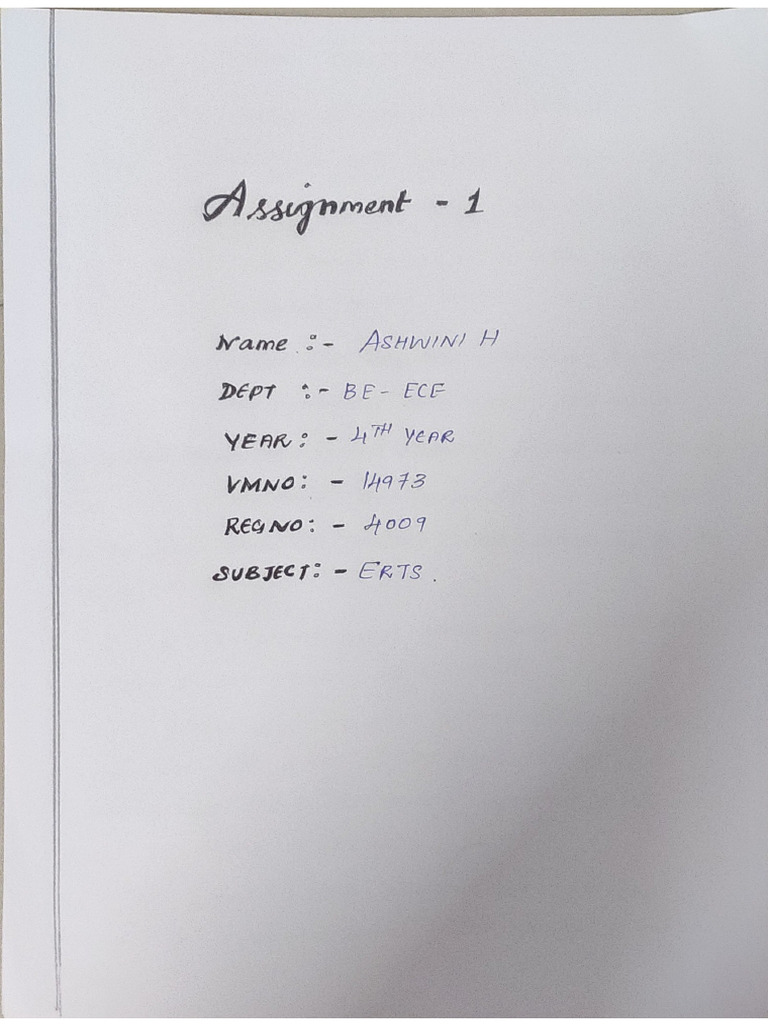 Assignment - 1
Name :- ASHWINI H
DEPT :- BE - ECE
YEAR: - 4TH YEAR
VMNO: - 14973
REGNO: - 4009
SUBJECT: - ERTS.